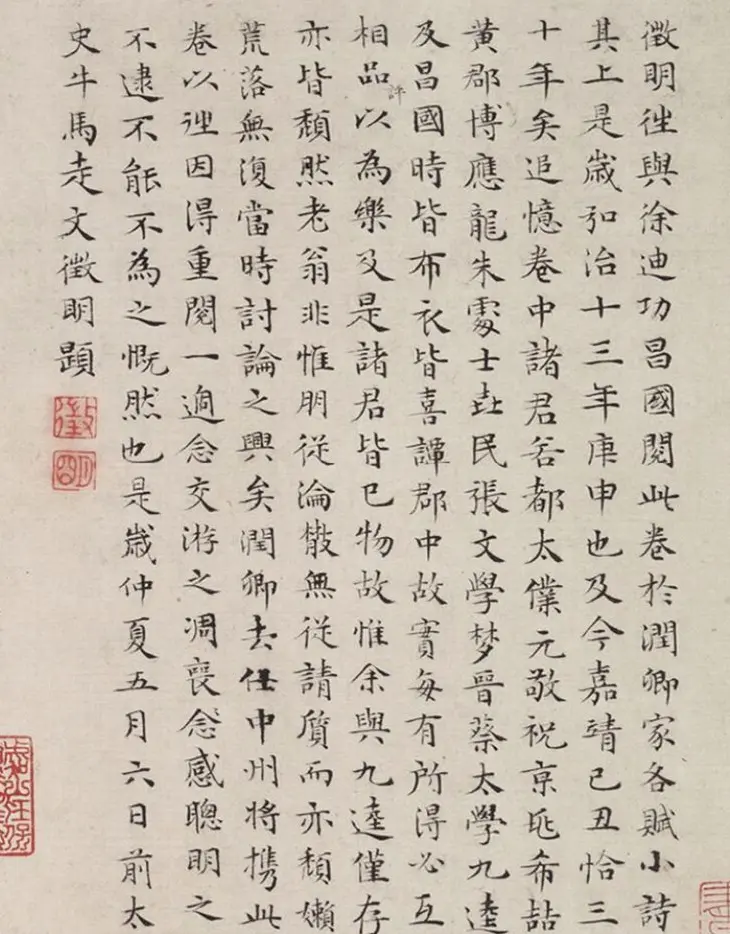 徵明往與徐迪功昌國閱此卷於潤卿家各賦小詩
其上是歲弘治十三年庚申也及今嘉靖己丑恰三
十年矣追憶卷中諸君若都太僕元敬祝京兆希喆
黃郡博應龍朱處士堯民張文學夢晉蔡太學九逵
及昌國時皆布衣皆喜譚郡中故實每有所得必互
相品以為樂及是諸君皆已物故惟余與九逵僅存
許
亦皆頹然老翁非惟朋從淪散無從請質而亦頹嬾
荒落無復當時討論之興矣潤卿去任中州將攜此
卷以逕因得重閱一過念交游之凋喪念感聰明之
不逮不能不為之慨然也是歲仲夏五月六日前太
史牛馬走文徵明題
徵
明